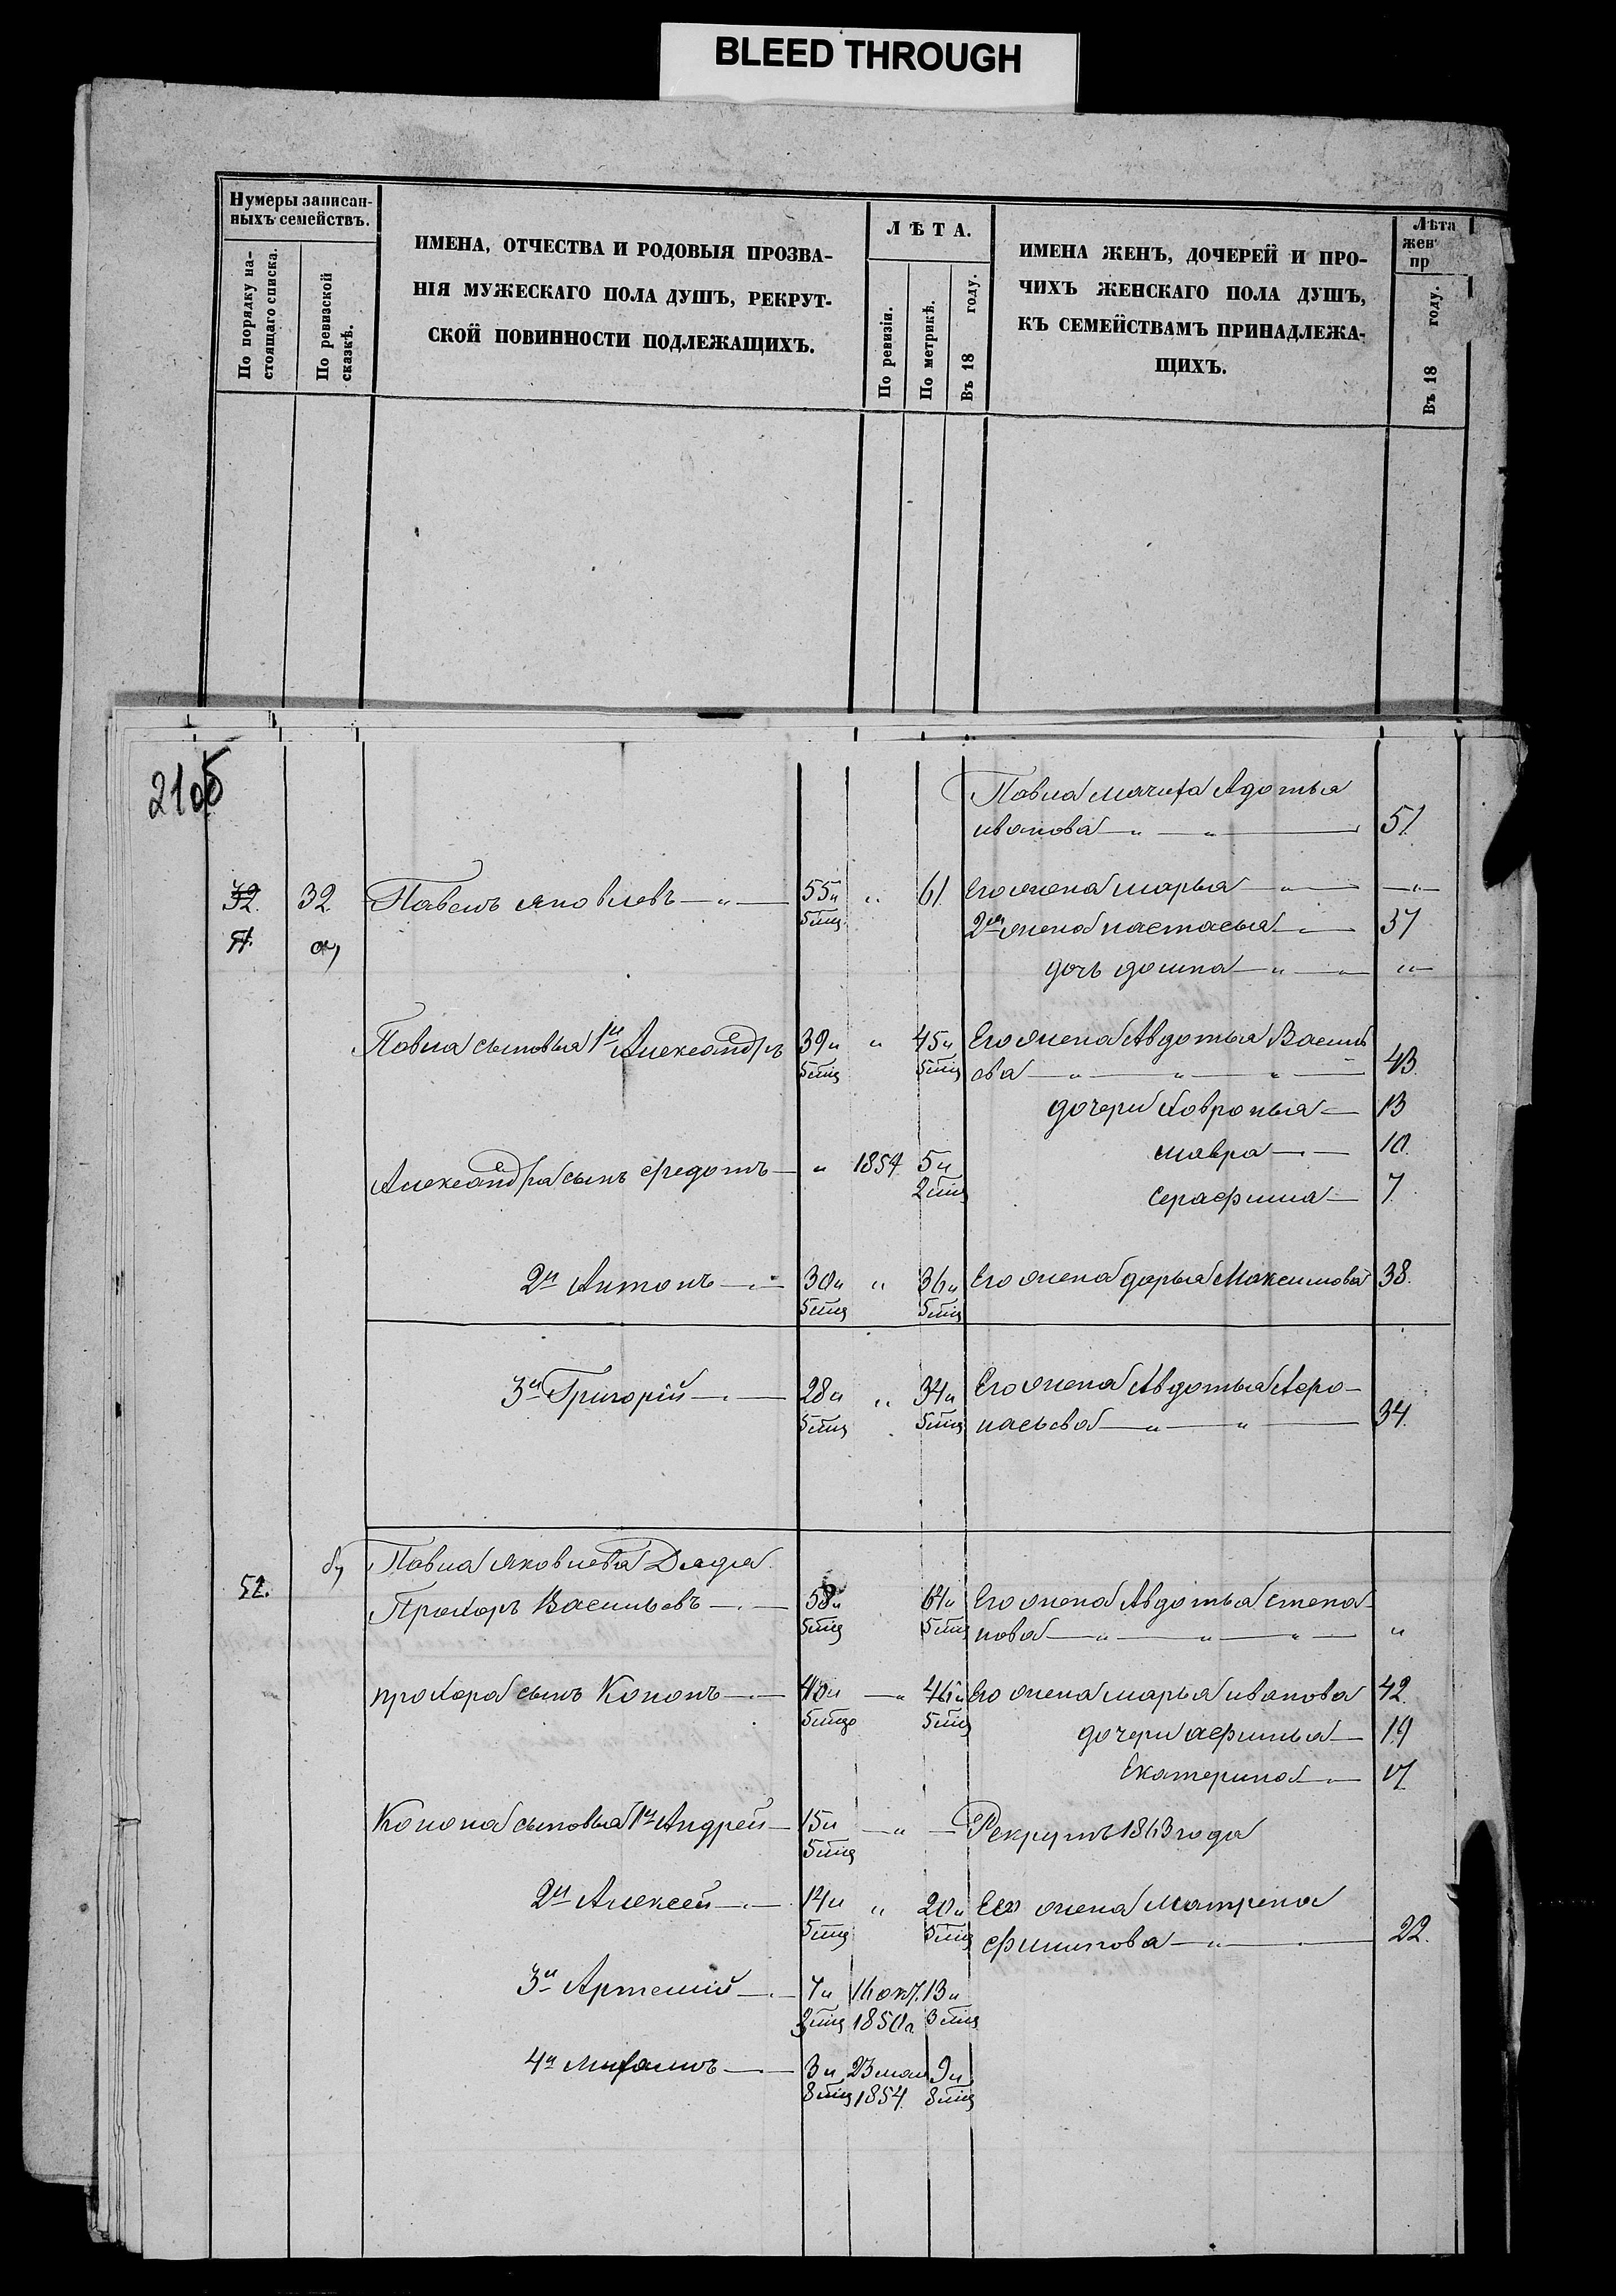 BLEED THROUGH
Нумеры записан-
ныхъ семействъ.
По порядку на-
стоящаго списка.
По ревизской
сказкѣ.
ИМЕНА, ОТЧЕСТВА И РОДОВЫЯ ПРОЗВА-
НІЯ МУЖЕСКАГО ПОЛА ДУШЪ, РЕКРУТ-
СКОЙ ПОВИННОСТИ ПОДЛЕЖАЩИХЪ.
ЛѢТА.
По ревизіи.
По метрикѣ.
Въ 18 году.
ИМЕНА ЖЕНЪ, ДОЧЕРЕЙ И ПРО-
ЧИХЪ ЖЕНСКАГО ПОЛА ДУШЪ,
КЪ СЕМЕЙСТВАМЪ ПРИНАДЛЕЖА-
ЩИХЪ.
Лѣта
жен
пр
Въ 18 году.
Павла мачиха Адотья
иванова — " — " — 51
32. 32 Павелъ яковлевъ — " — 55 и " 61 Его жена марья — " — — " —
51. а) 5 мц 2я жена настасья — " — 37
дочь домна — " — " — " —
Павла сыновья 1й Александръ 39 и " 45 и Его жена Авдотья Василь
5 мц 5 мц ова — " — " — " — 43.
дочери Ховронья — 13
мавра — " — 10.
Александра сынъ федотъ — " 1854 5 и
2 мц серафима — 7.
2й Антонъ — " — 30 и " 36 и Его жена дарья Максимова 38.
5 мц 5 мц
3й Григорій — " — 28 и " 34 и Его жена Авдотья Афо-
5 мц 5 мц насьева — " — " — 34.
б) Павла яковлева Дядя
52. Прохоръ Васильевъ — " — 58 и 64 и Его жена Авдотья степа
5 мц 5 мц нова — " — " — " — "
прохора сынъ Кононъ — " — 40 и — " 46 и Его жена марья иванова 42.
5 мц 5 мц дочери афимья — 19
Екатерина — " — 17
Конона сыновья 1й Андрей — 15 и — " — Рекрутъ 1863 года
5 мц
2й Алексей — " — 14 и " 20 и Его жена Матрена
5 мц 5 мц филипова — " — 22.
3й Артемій — " — 7 и 16 окт. 13 и
3 мц 1850 г. 3 мц
4й Михаилъ — " — 3 и 23 мая 9 и
8 мц 1854. 8 мц